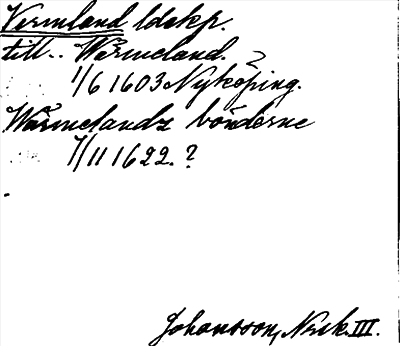 Vermland ldskp.
till.. Wärmeland.
1/6 1603 Nyköping.
Wärmelandz bönderne
7/11 1622.?
Johansson, Norsk. III.